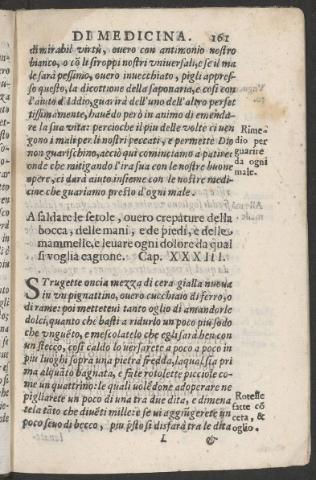 DI MEDICINA. 161
di mirabil virtù, ouero con antimonio nostro
bianco, o cõ li siroppi nostri vniuersali, e se il ma
le sarà pessimo, ouero inuecchiato, pigli appres-
so questo, la dicottione della saponaria, e così con
l'aiuto d'Iddio, guarirà dell'uno dell'altro perfet
tissimamente, hauẽdo però in animo di emenda-
re la sua vita: percioche il piu delle volte ci uen
gono i mali per li nostri peccati, e permette Dio
non guarischino, acciò qui cominciamo a patire:
onde che mitigando l'ira sua con le nostre buone
opere, ci darà aiuto insieme con le nostre medi-
cine che guariamo presto d'ogni male.
Rime
dio per
guarire
da ogni
male.
A saldare le setole, ouero crepature della
bocca, delle mani, e de piedi, e delle
mammelle, e leuare ogni dolore da qual
si voglia cagione. Cap. XXXIII.
STrugette oncia mezza di cera gialla nuoua
in vn pignattino, ouero cucchiaio di ferro, o
di rame: poi mettetevi tanto oglio di amandorle
dolci, quanto che basti a ridurlo un poco piu sodo
che vnguẽto, e mescolatelo che egli sarà ben con
un stecco, così caldo lo versarete a poco a poco in
piu luoghi sopra una pietra fredda, laqual sia pri
ma alquãto bagnata, e fate rotolette picciole co-
me un quattrino: le quali uolẽdone adoperare ne
pigliarete un poco di una tra due dita, e dimena
tela tãto che diuẽti mille: e se ui aggiũgerete un
poco seuo di becco, piu p̃sto si disfarà tra le dita
Rotelle
fatte cõ
cera, &
oglio.
L &